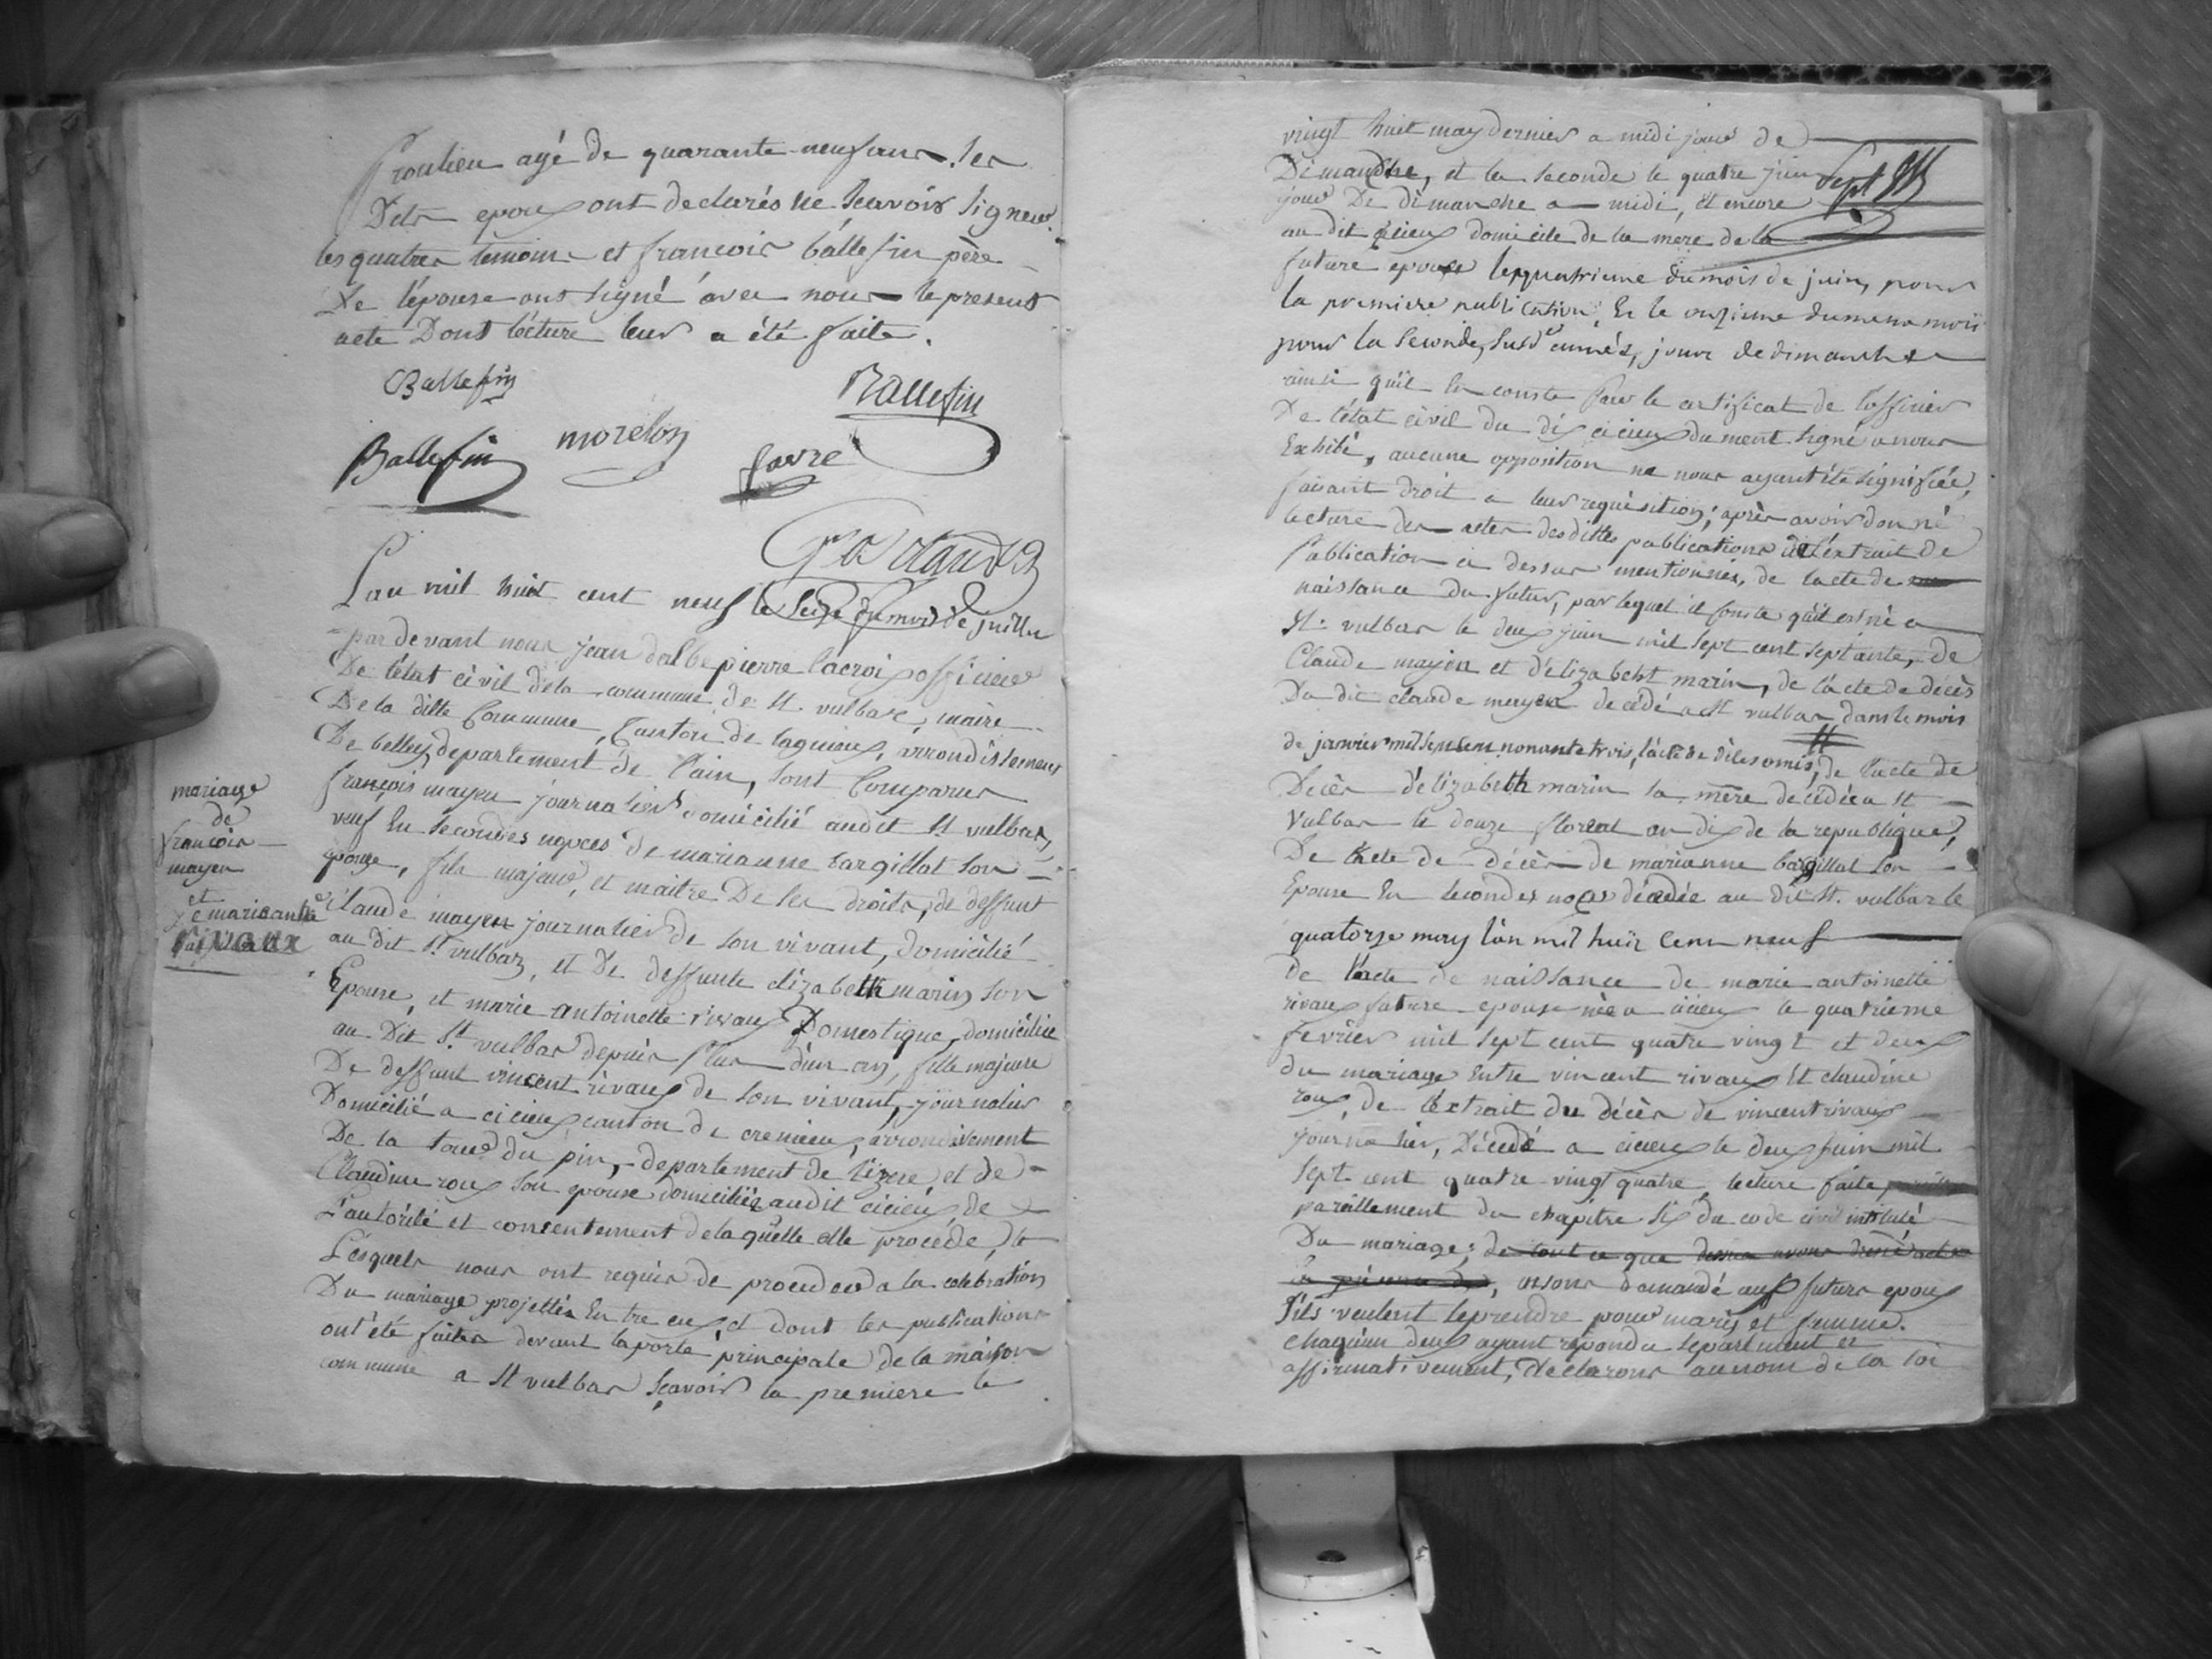 proulieu agé de quarante neuf ans. Les
Dits epoux ont declarés ne Scavoir Signer
les quatres temoins et francois ballefin père
De l'épouse ont signé avec nous le present
acte Dont lécture leur a été faite.
Ballefin
Ballefin
Ballefin
morelon
favre
L'an mil huit cent neuf le Seize du mois de juillet
par devant nous jean dalbepierre lacroix officier
De l'état civil dela commune de St. vulbas, maire
De la ditte Commune, Canton de lagnieux, arrondissement
De belley, departement de l'ain, sont Comparus
françois mayen journalier domicilié audit St vulbas,
veuf En secondes nopces de marianne bargillat son
epouse, fils majeur, et maitre De ses droits, de deffunt
claude mayen journalier de son vivant, domicilié
au dit St. vulbaz, et De deffunte elizabeth marin son
Epouse, et marie antoinette rivaux Domestique, domiciliée
au Dit St. vulbas depuis plus d'un an, fille majeure
De deffunt vincent rivaux de son vivant, journalier
Domicilié a cicieux canton de cremieu, arrondissement
De la tour du pin, departement de l'izere, et de
Claudine roux son epouse domiciliée audit cicieux, de
L'autorité et consentement de laquelle elle procede,
Lesquels nous ont requis de proceder a la celebration
Du mariage projettés Entre eux, et dont les publications
ont été faites devant la porte principale de la maison
commune a St vulbas Sçavoir la premiere le
mariage
de
francois
mayen
et
marie ant
rivaux
vingt huit may dernier a midi jour de
Dimanche, et la seconde le quatre juin
jour De dimanche a midi, et encore
au dit cicieux domicile de la mere de la
future epouse le quatrieme du mois de juin, pour
la premiere publication, Et le onzieme du meme mois
pour la seconde, Susd. année, jours de dimanches
ainsi qu'il en conste par le certificat de l'officier
De l'état civil du dit cicieux dument signé a nous
Exhibé, aucune opposition ne nous ayant été signifiée,
faisant droit a leur requisition; après avoir donné
lecture des actes desdittes publications de l'extrait de
Publication ci dessus mentionnés, de l'acte de
naissance du futur, par lequel il conste qu'il est né a
St. vulbas le deux juin mil sept cent septante, de
Claude mayen et d'elizabeht marin, de l'acte de décès
Du dit claude mayen decédé a St vulbas dans le mois
de janvier mil sept cent nonante trois, de l'acte de
Decès d'elizabeth marin sa mère decédée a St
Vulbas le douze floreal an dix de la republique,
De l'acte de décès de marianne bargillat son
Epouse En secondes noces décedée au dit St. vulbaz le
quatorze may l'an mil huit Cent neuf
de l'acte de naissance de marie antoinette
rivaux future epouse née a cicieux le quatrieme
fevrier mil sept cent quatre vingt et deux
du mariage Entre vincent rivaux Et claudine
roux, de l'éxtrait du décès de vincent rivaux
journalier, Décedé a cicieux le deux juin mil
sept cent quatre vingt quatre, lecture faite
pareillement du chapitre six du code civil intitulé
Du mariage; de tout ce que dessus avons dressé acte
en presence de, avons demandé aux futurs epoux
S'ils veulent se prendre pour maris et femme.
Chaqu'un d'eux ayant répondu separément et
affirmativement, déclarons au nom de la loi